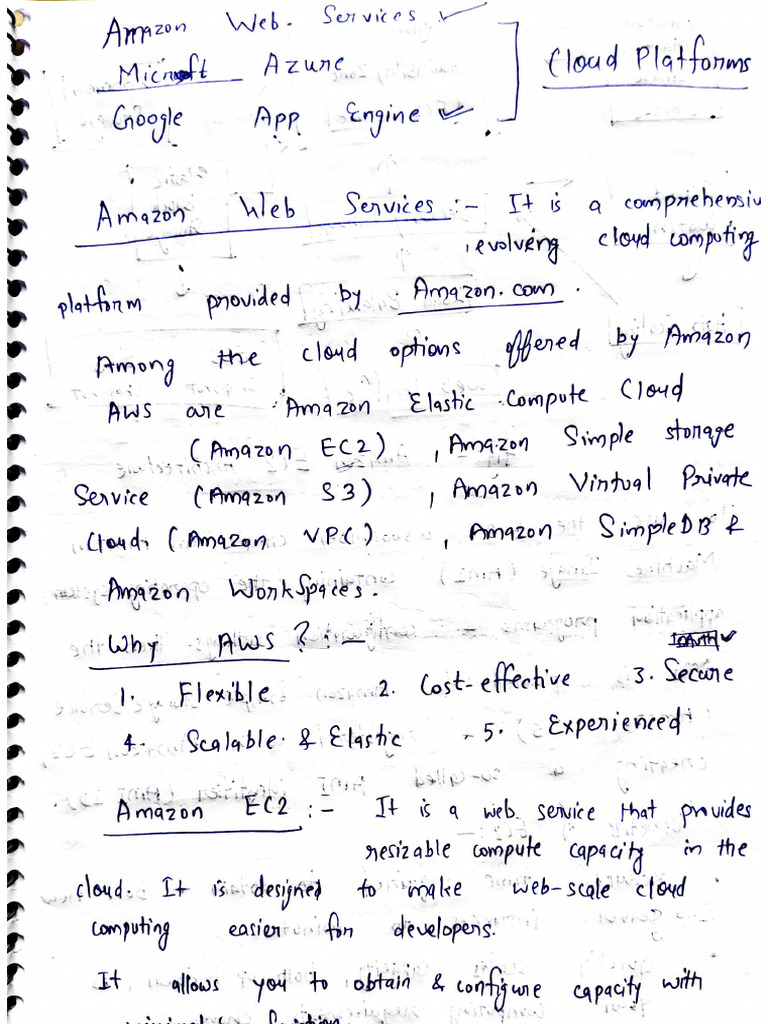 Amazon Web Services ✓
Microsoft Azure
Google App Engine ✓
Cloud Platforms
Amazon Web Services :- It is a comprehensiv
, evolving cloud computing
platform provided by Amazon.com.
Among the cloud options offered by Amazon
AWS are Amazon Elastic Compute Cloud
(Amazon EC2), Amazon Simple storage
Service (Amazon S3), Amazon Virtual Private
Cloud. (Amazon VPC), Amazon SimpleDB &
Amazon WorkSpaces.
Why AWS ? :-
1. Flexible 2. Cost-effective 3. Secure
4. Scalable & Elastic 5. Experienced
Amazon EC2 :- It is a web service that provides
resizable compute capacity in the
cloud. It is designed to make web-scale cloud
computing easier for developers.
It allows you to obtain & configure capacity with